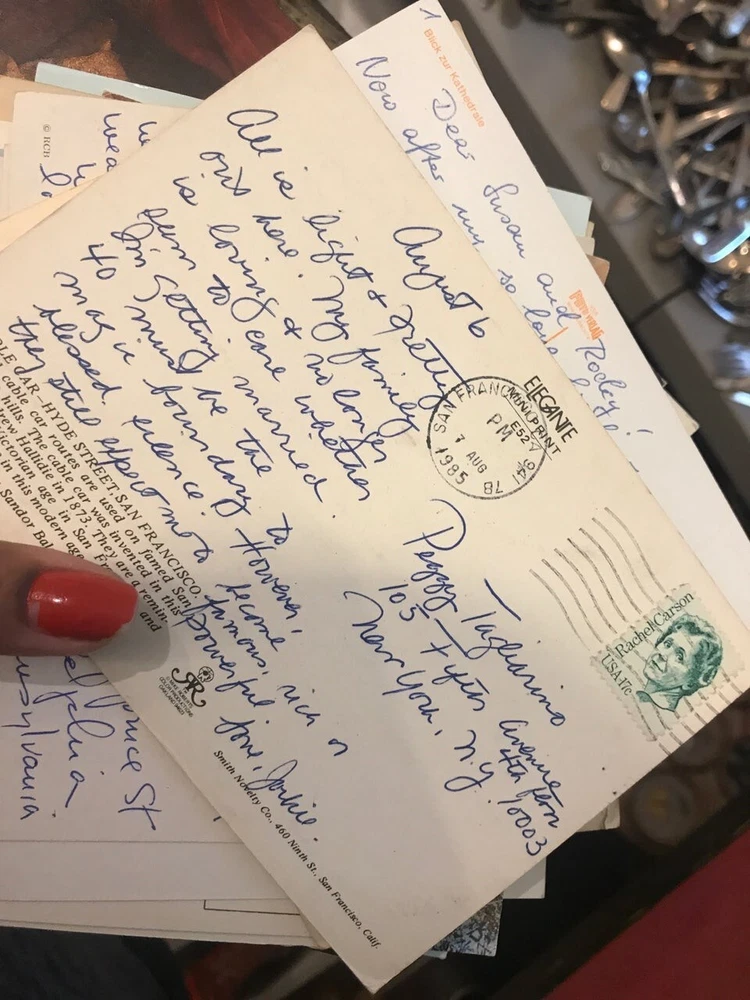 August 6
All is light & pretty
out here. My family
is loving & no longer
seem to care whether
I'm getting married.
40 must be the
magic boundary to
blessed silence. However,
they still expect me to become
famous, rich or
powerful
Love, Jackie.
SAN FRANCISCO
PM
7 AUG
1985
941
ELEGANTE
Rachel Carson
USA 17c
Peggy Tagliarino
105 Fifth Avenue
4th floor
New York, N.Y. 10003
CAR—HYDE STREET, SAN FRANCISCO
cable car routes are used on famed San
hills. The cable car was invented in this
Hallidie in 1873. They are a remin-
Victorian age in San
and
in this modern age
Sandor
Smith Novelty Co., 460 Ninth St., San Francisco, Calif.
1
Blick zur Kathedrale
Dear Susan and Rocky!
Now after my so long
© RCB
St